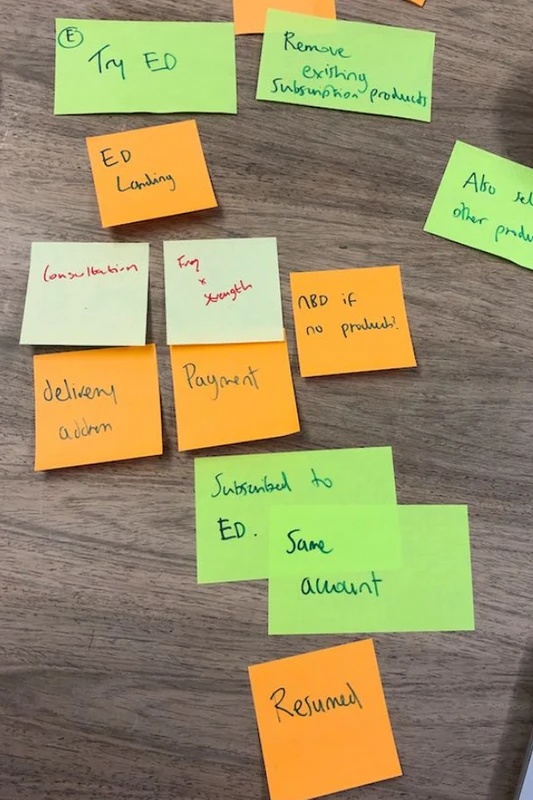 E
Try ED
Remove
existing
Subscription products
ED
Landing
Also
other
Consultation
Freq
x
strength
NBD if
no product?
delivery
address
Payment
Subscribed to
ED.
Same
account
Resumed